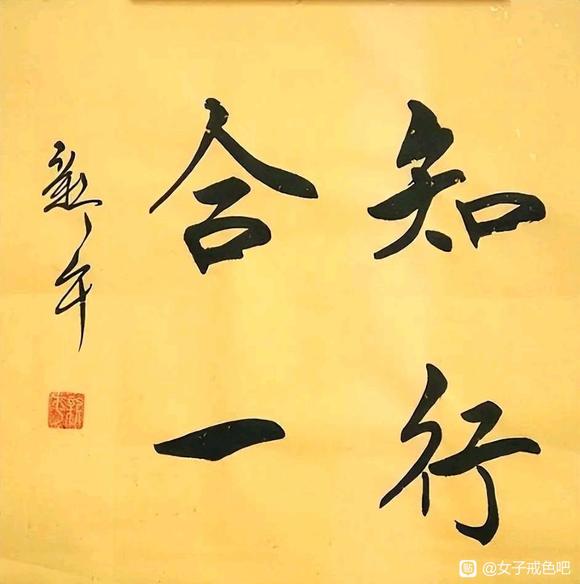 知行
合一
@女子戒色吧